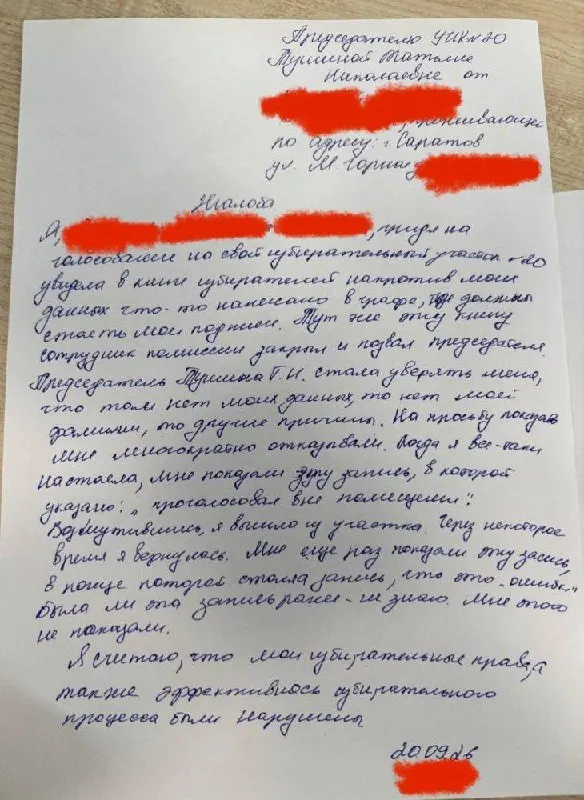 Председателю УИК №20
Тушиной Татьяне
Николаевне от
проживающей
по адресу: г Саратов
ул. М. Горького
Жалоба
Я, , придя на
голосование на свой избирательный участок №20
увидела в книге избирателей напротив моих
данных что-то написано в графе, где должны
стоять мои подписи. Тут же эту книгу
сотрудник комиссии закрыл и позвал председателя.
Председатель Тушина Т.Н. стала уверять меня,
что там нет моих данных, то нет моей
фамилии, то другие причины. На просьбу показать
мне многократно отказывали. Когда я все-таки
настояла, мне показали эту запись, в которой
указано: "проголосовал вне помещения".
Возмутившись, я вышла из участка. Через некоторое
время я вернулась. Мне еще раз показали эту запись,
в конце которой стояла запись, что это "ошибка"
Была ли эта запись ранее - не знаю. Мне этого
не показали.
Я считаю, что мои избирательные права, а
также эффективность избирательного
процесса были нарушены
20.09.26